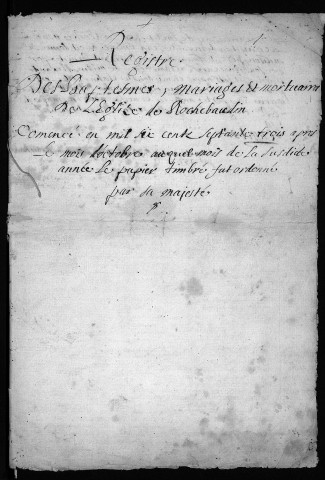 Registre
Des baptesmes, mariages et mortuaires
De L'Eglize de Rochebaudin
Comencé en mil six cents septante trois apres
Le mois d'octobre auquel mois de la susdide
année Le papier timbré fut ordonné
par sa majesté